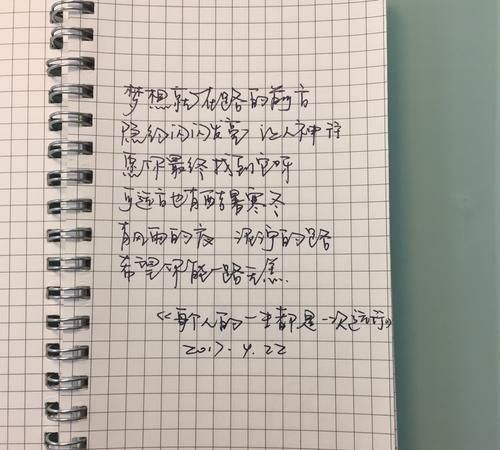 梦想就在路的前方
隐约闪闪发亮 让人神往
愿你最终找到它呀
可远方也有酷暑寒冬
有风雨的夜 泥泞的路
希望你能一路无恙
《每个人的一生都是一次远行》
2017.4.22